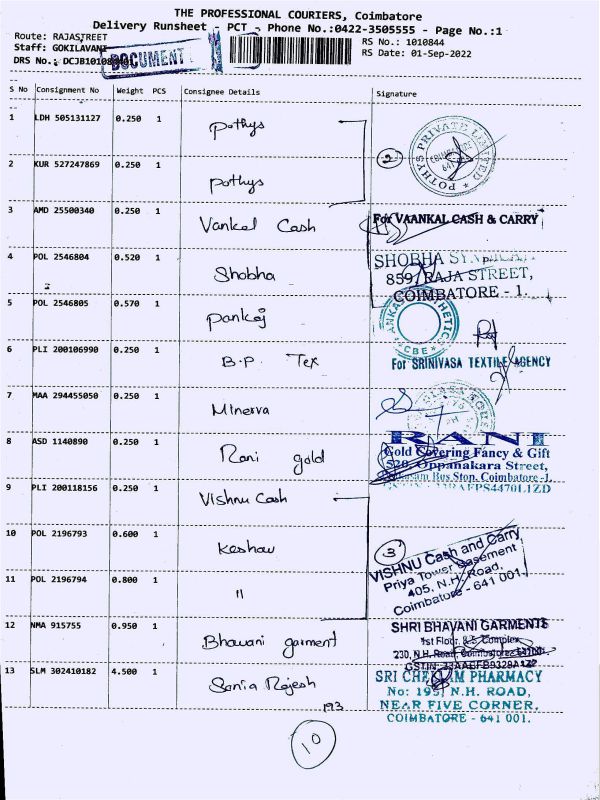 THE PROFESSIONAL COURIERS, Coimbatore
Delivery Runsheet - PCT - Phone No.:0422-3505555 - Page No.:1
Route: RAJASTREET
RS No.: 1010844
Staff: GOKILAVANI
RS Date: 01-Sep-2022
DOCUMENT
DRS No.: DCJB10108
S No Consignment No Weight PCS Consignee Details Signature
1 LDH 505131127 0.250 1 Pothys
POTHYS PRIVATE LIMITED
2
2 KUR 527247869 0.250 1 Pothys
3 AMD 25500340 0.250 1 Vankal Cash
For VAANKAL CASH & CARRY
4 POL 2546804 0.520 1 Shobha
SHOBHA
859, RAJA STREET,
COIMBATORE - 1.
5 POL 2546805 0.570 1 Pankaj
CBE
6 PLI 200106990 0.250 1 B.P. Tex
For SRINIVASA TEXTILE AGENCY
7 MAA 294455050 0.250 1 Minerva
8 ASD 1140890 0.250 1 Rani gold
RANI
Gold Covering Fancy & Gift
520, Oppanakara Street,
Bus Stop, Coimbatore -1.
9 PLI 200118156 0.250 1 Vishnu Cash
10 POL 2196793 0.600 1 Keshav
3
VISHNU Cash and Carry
Priya Tower Basement
405, N.H. Road,
Coimbatore - 641 001.
11 POL 2196794 0.800 1 "
12 NMA 915755 0.950 1 Bhavani garment
SHRI BHAVANI GARMENTS
1st Floor,
230, N.H. Road,
13 SLM 302410182 4.500 1 Sonia Rajesh
SRI PHARMACY
No: 195, N.H. ROAD,
NEAR FIVE CORNER,
COIMBATORE - 641 001.
193
10